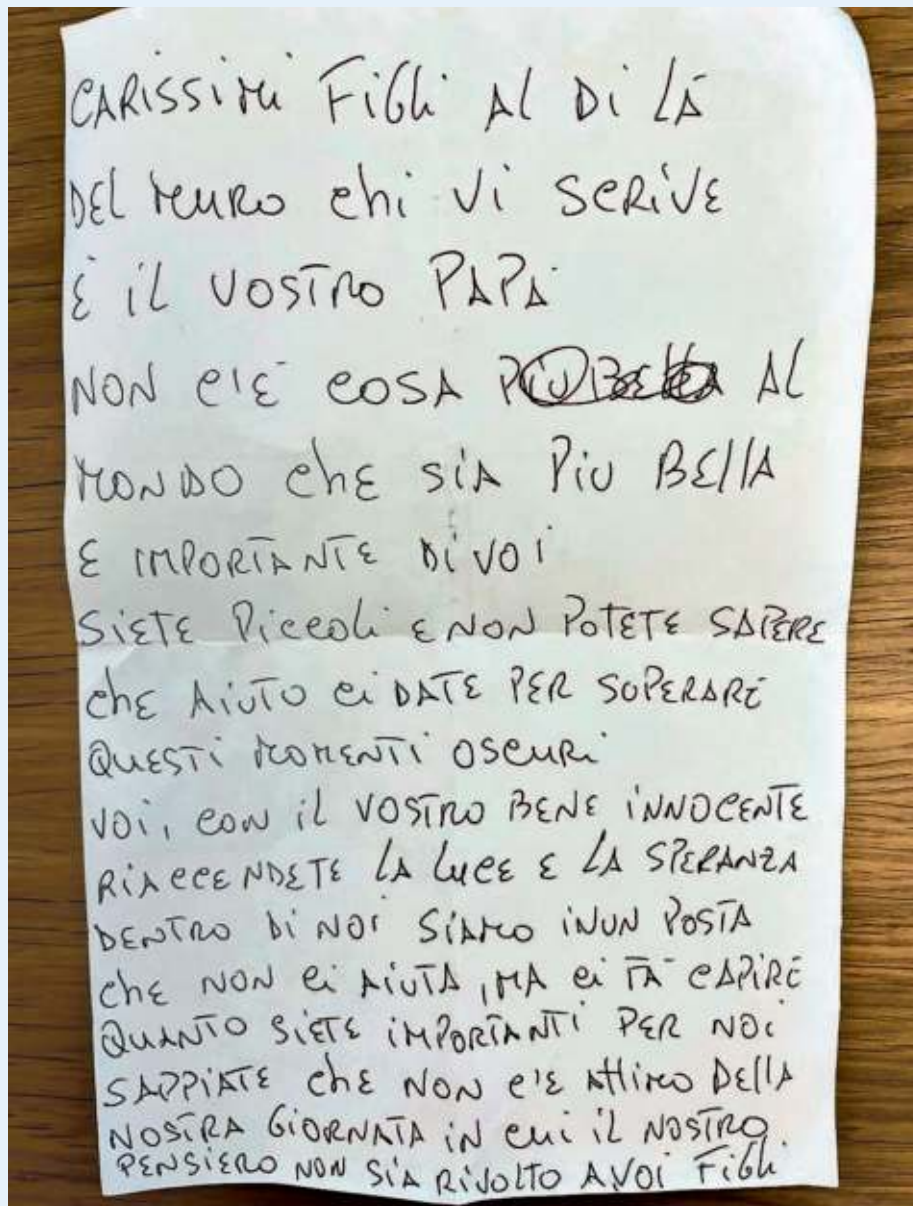 CARISSIMI FIGLI AL DI LÀ
DEL MURO CHI VI SCRIVE
È IL VOSTRO PAPÀ
NON C'È COSA AL
MONDO CHE SIA PIÙ BELLA
E IMPORTANTE DI VOI
SIETE PICCOLI E NON POTETE SAPERE
CHE AIUTO CI DATE PER SUPERARE
QUESTI MOMENTI OSCURI
VOI, CON IL VOSTRO BENE INNOCENTE
RIACCENDETE LA LUCE E LA SPERANZA
DENTRO DI NOI SIAMO IN UN POSTA
CHE NON CI AIUTA, MA CI FÀ CAPIRE
QUANTO SIETE IMPORTANTI PER NOI
SAPPIATE CHE NON C'È ATTIMO DELLA
NOSTRA GIORNATA IN CUI IL NOSTRO
PENSIERO NON SIA RIVOLTO A VOI FIGLI